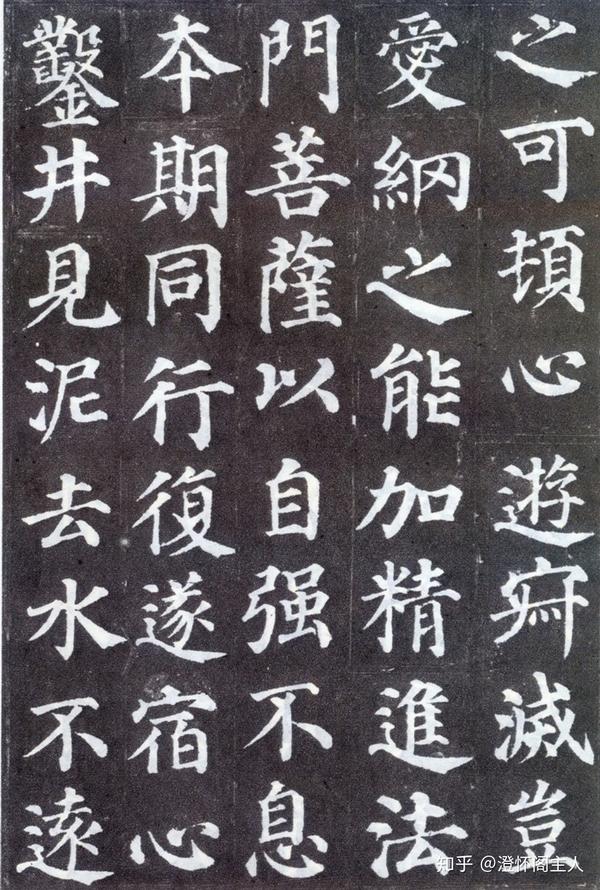 之可頓心遊寂滅豈
愛網之能加精進法
門菩薩以自强不息
本期同行復遂宿心
鑿井見泥去水不遠
知乎 @澄怀阁主人